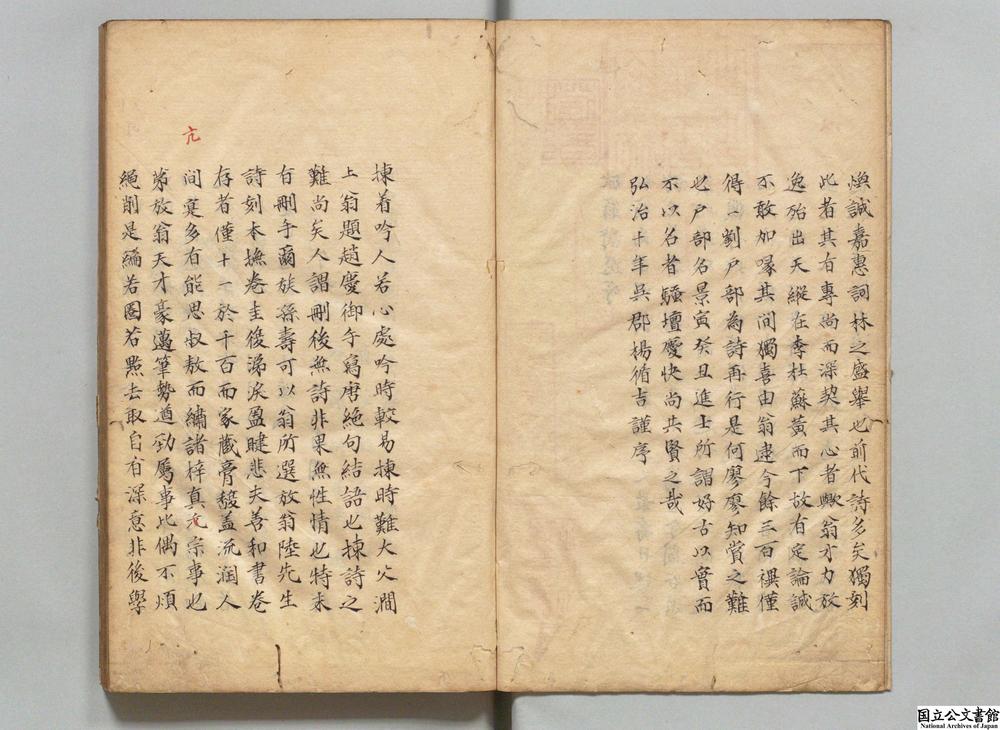 煥誠嘉惠詞林之盛舉也前代詩多矣獨刻
此者其有專尚而深契其心者歟翁才力放
逸殆出天縱在李杜蘇黃而下故有定論誠
不敢加喙其間獨喜由翁逮今餘三百禩僅
得一劉戶部為詩再行是何廖廖知賞之難
也戶部名景寅癸丑進士所謂好古以實而
不以名者騷壇慶快尚共賢之哉
弘治十年吳郡楊循吉謹序
揀着吟人若心處吟時較易揀時難大父澗
上翁題趙慶御手寫唐絕句結語也揀詩之
難尚矣人謂刪後無詩非果無性情也特未
有刪手爾族孫壽可以翁所選放翁陸先生
詩刻本撫卷圭復涕淚盈睫悲夫善和書卷
存者僅十一於千百而家藏膏馥盖流潤人
间寔多有能思叔敖而繡諸梓真亢宗事也
第放翁天才豪邁筆勢遒勁屬事比偶不煩
繩削是編若圈若點去取自有深意非後學
亢
国立公文書館
National Archives of Japan